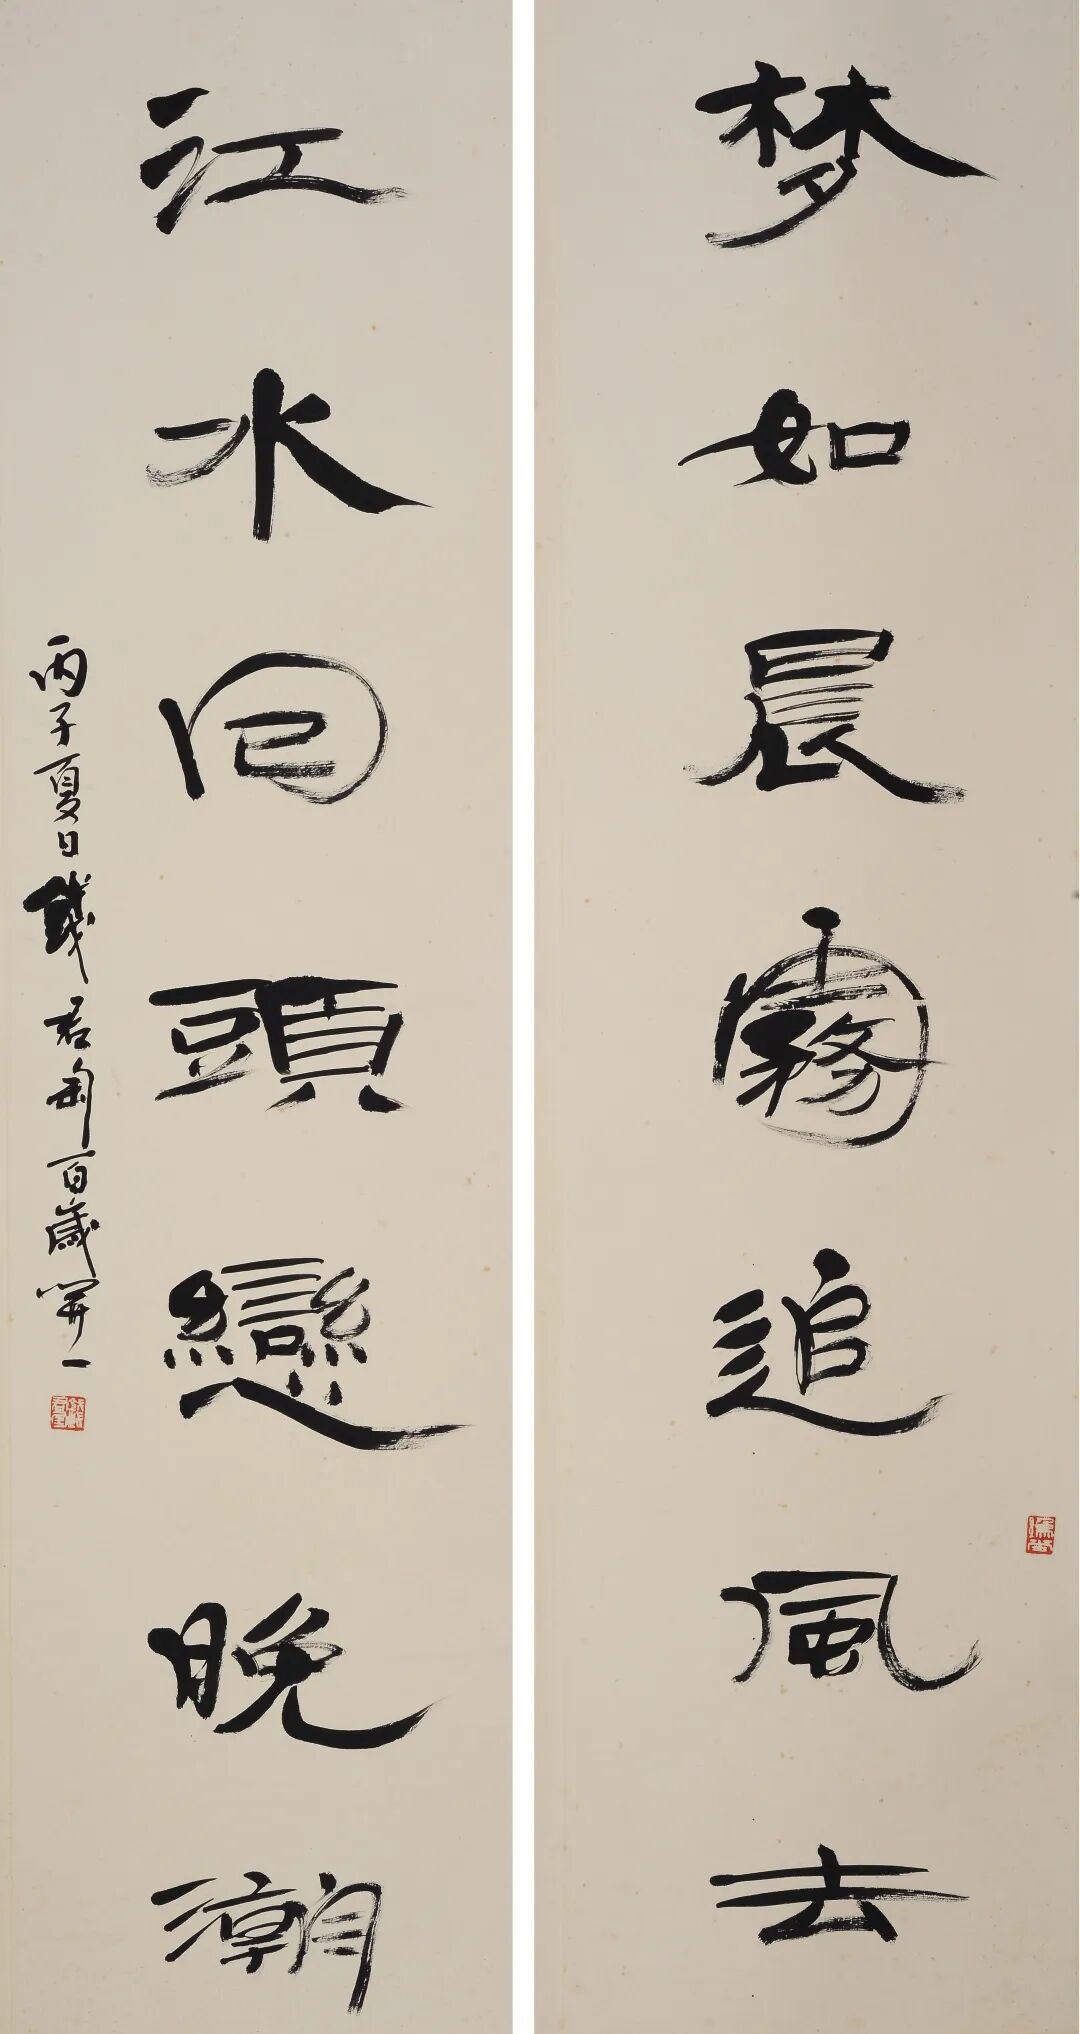 梦如晨霧追風去
江水回頭戀晚潮
丙子夏日錢君匋百歲開一